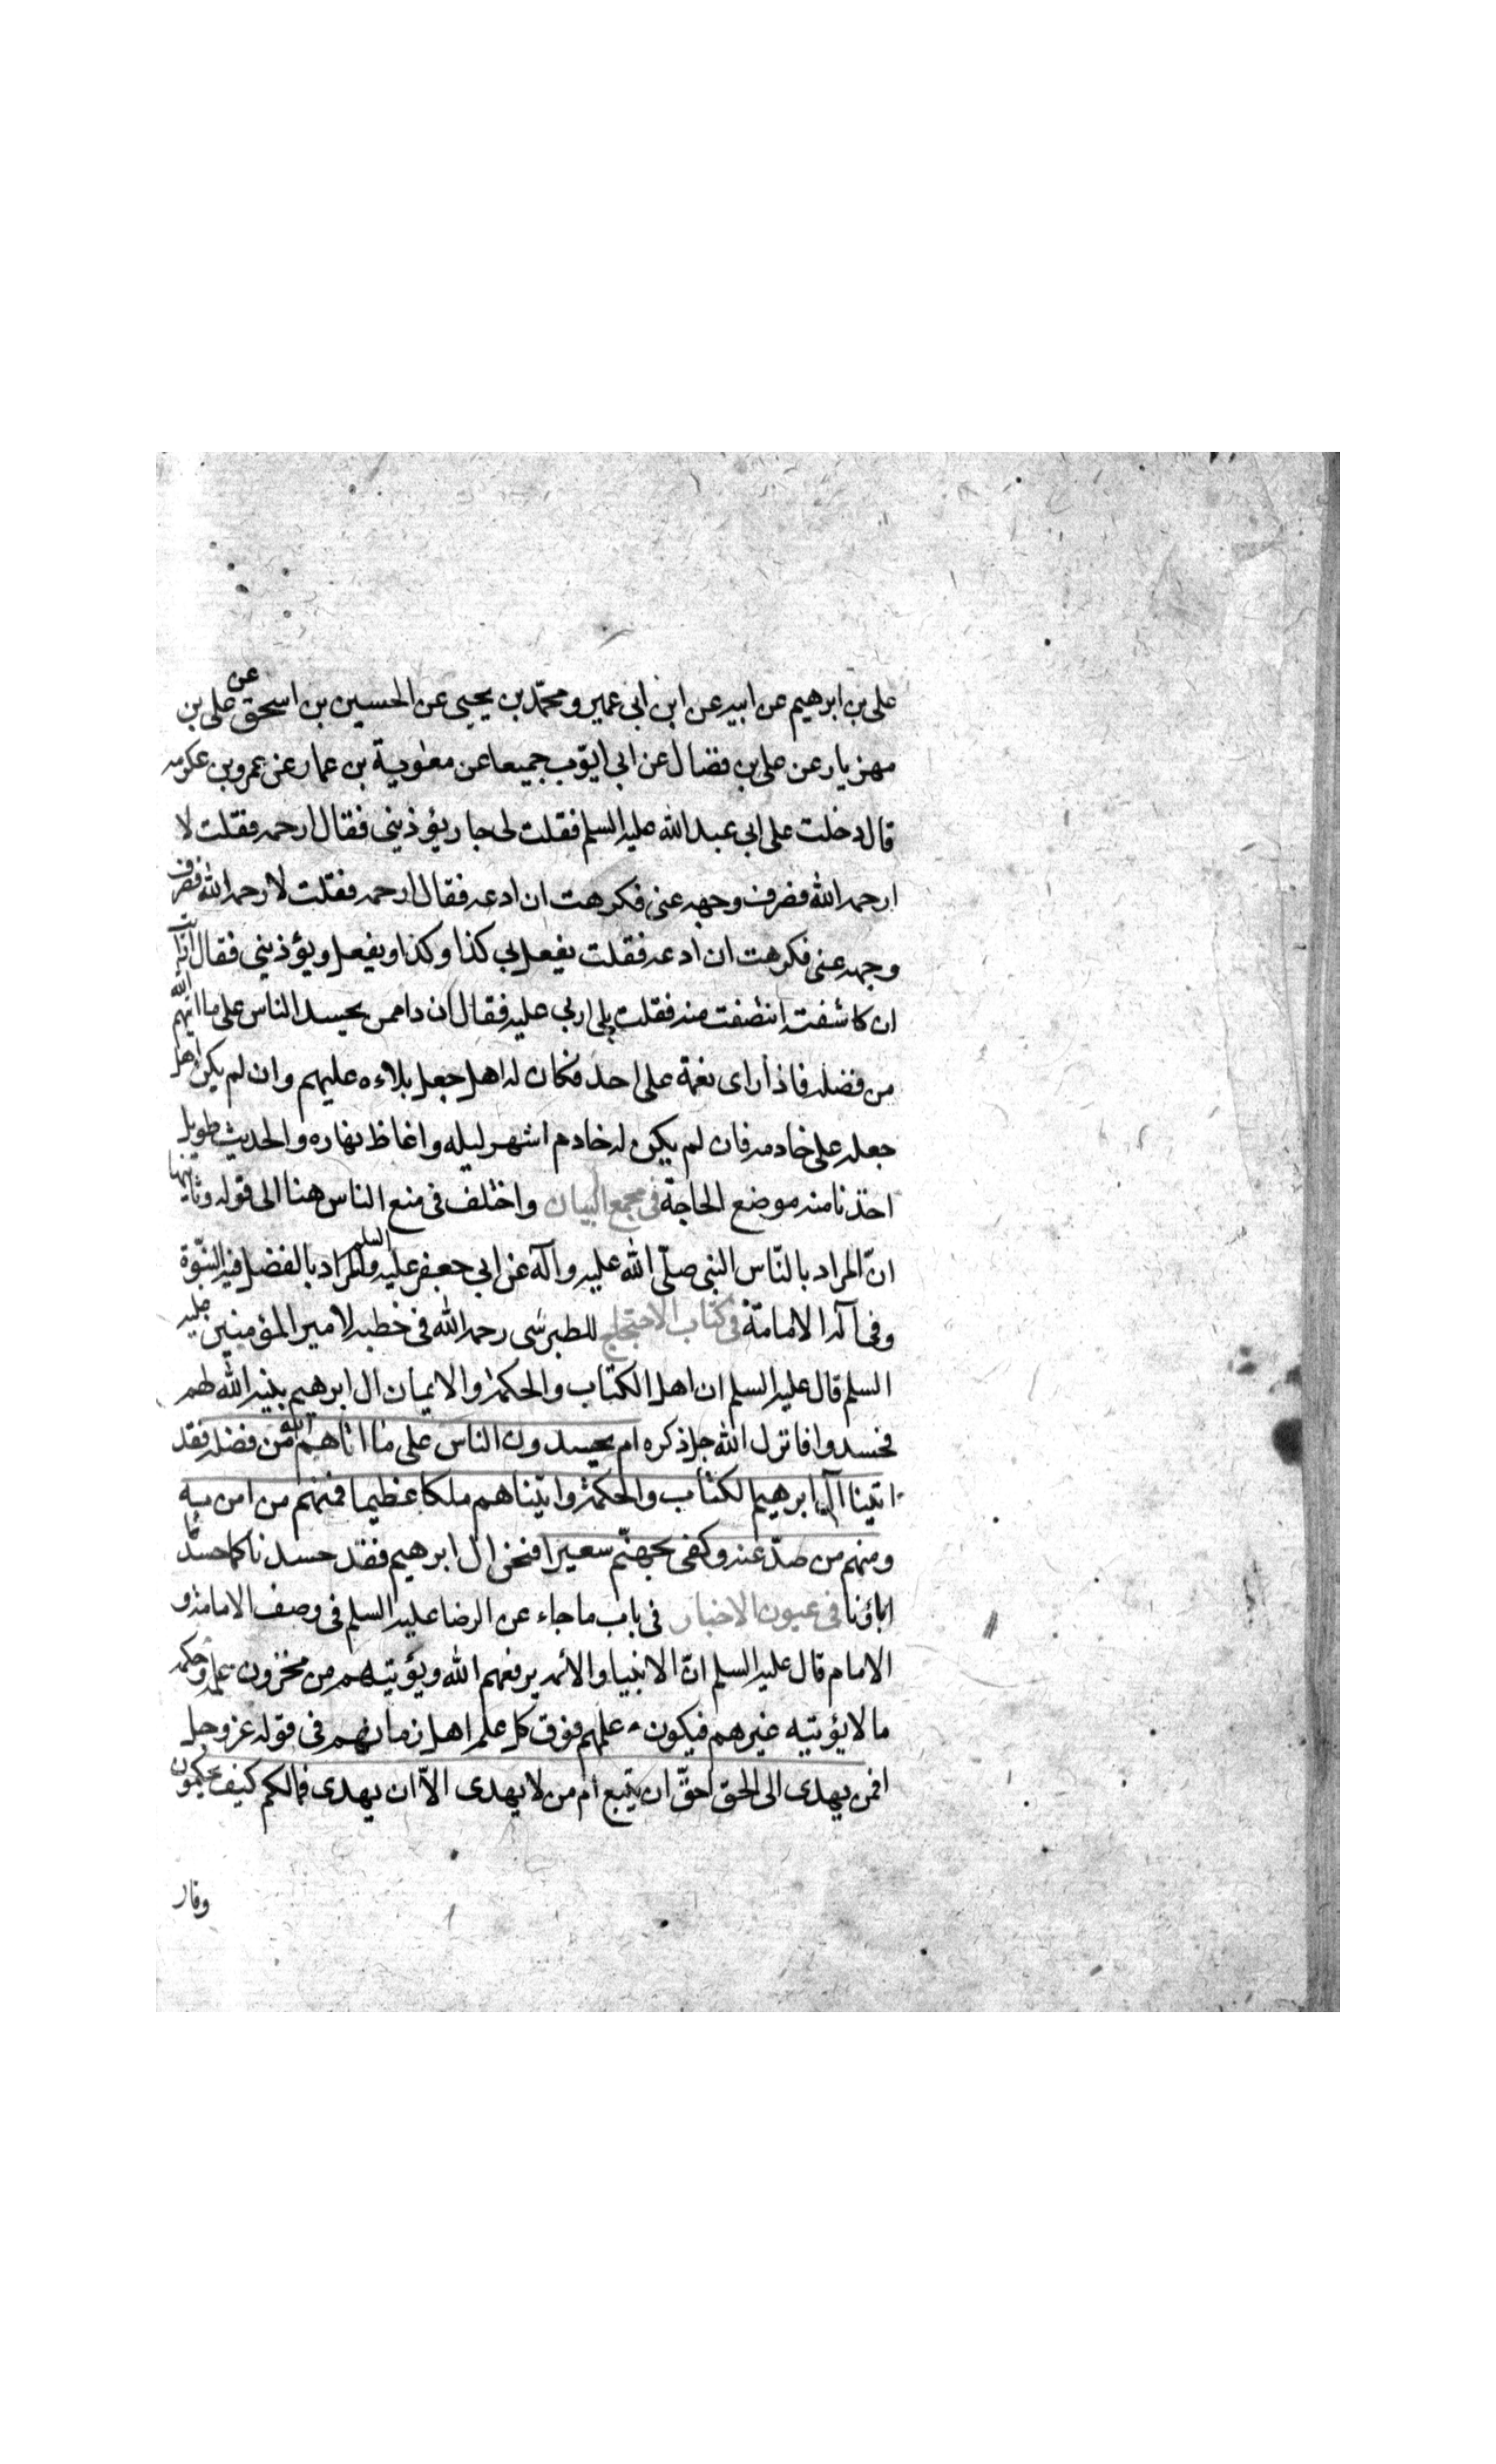 على بن ابرهيم عن ابيه عن ابن ابى عمير ومحمّد بن يحيى عن الحسين بن اسحق عن على بن
مهزيار عن على بن فضال عن ابى ايّوب جميعا عن معوية بن عمار عن عمرو بن عكرمه
قال دخلت على ابى عبد الله عليه السلم فقلت لى جار يؤذينى فقال ارحمه فقلت لا
ارحمه الله فصرف وجهه عنى فكرهت ان ادعه فقال ارحمه فقلت لا رحمه الله فصرف
وجهه عنى فكرهت ان ادعه فقلت يفعل بى كذا وكذا ويفعل ويؤذينى فقال ارأيت
ان كاشفته انتصفت منه فقلت بلى اربى عليه فقال ان ذا ممن يحسد الناس على ما اتيهم الله
من فضله فاذا راى نعمة على احد فكان له اهل جعل بلاءه عليهم وان لم يكن اهل
جعله على خادمه فان لم يكن له خادم اشهر ليله واغاظ نهاره والحديث طويل
اخذنا منه موضع الحاجة فى مجمع البيان واختلف فى منع الناس هنا الى قوله وثانيها
انّ المراد بالنّاس النبى صلّى الله عليه وآله عن ابى جعفر عليه السلم والمراد بالفضل فيه النبّوة
وفى آله الامامة فى كتاب الاحتجاج للطبرسى رحمه الله فى خطبه لامير المؤمنين عليه
السلم قال عليه السلم ان اهل الكتاب والحكمة والايمان ال ابرهيم بيّنه الله لهم
فحسدوا فانزل الله جل ذكره ام يحسدون الناس على ما اتاهم الله من فضله فقد
اتينا آل ابرهيم الكتاب والحكمة واتيناهم ملكا عظيما فمنهم من امن به
ومنهم من صدّ عنه وكفى بجهنّم سعيرا فنحن ال ابرهيم فقد حسدنا كما حسد
اباؤنا فى عيون الاخبار فى باب ما جاء عن الرضا عليه السلم فى وصف الامامة و
الامام قال عليه السلم انّ الانبيا والائمه يرفعهم الله ويؤتيهم من مخزون علمه وحكمه
ما لا يؤتيه غيرهم فيكون علمهم فوق كل علم اهل زمانهم فى قوله عز وجل
افمن يهدى الى الحق احقّ ان يتّبع ام من لا يهدى الّا ان يهدى فمالكم كيف تحكمون
وقار